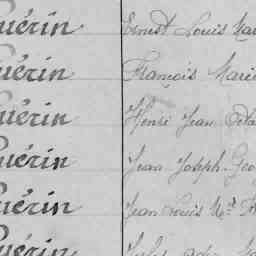 Guérin Ernest Louis
Guérin François Marie
Guérin Henri Jean
Guérin Jean Joseph
Guérin Jean Louis M.t
Guérin Jules